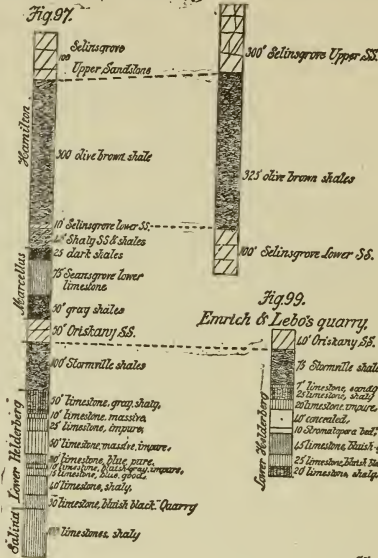 Fig.97.
Selinsgrove
100
Upper Sandstone
Hamilton
300' olive brown shale
10' Selinsgrove lower SS.
Shaly SS & shales
25 dark shales
Marcellus
75' Seansgrove lower
limestone
50' gray shales
50' Oriskany SS.
100' Stormville shales
50' limestone, gray, shaly.
10' limestone, massive
25' limestone, impure
limestone, massive, impure.
limestone, blue, pure.
limestone, bluish gray, impure.
limestone, blue, good.
40' limestone, shaly.
30' limestone, bluish black Quarry
limestones, shaly
Lower Helderberg
Salina
300' Selinsgrove Upper SS.
325' olive brown shales
100' Selinsgrove Lower SS.
Fig.99.
Emrich & Lebo's quarry.
40' Oriskany SS.
75' Stormville shale
7' limestone, sandy
25' limestone, shaly
20' limestone, impure.
40' concealed.
10 Stromatopora bed.
45' limestone, bluish
25' limestone, bluish
20' limestone, shaly
Lower Helderberg